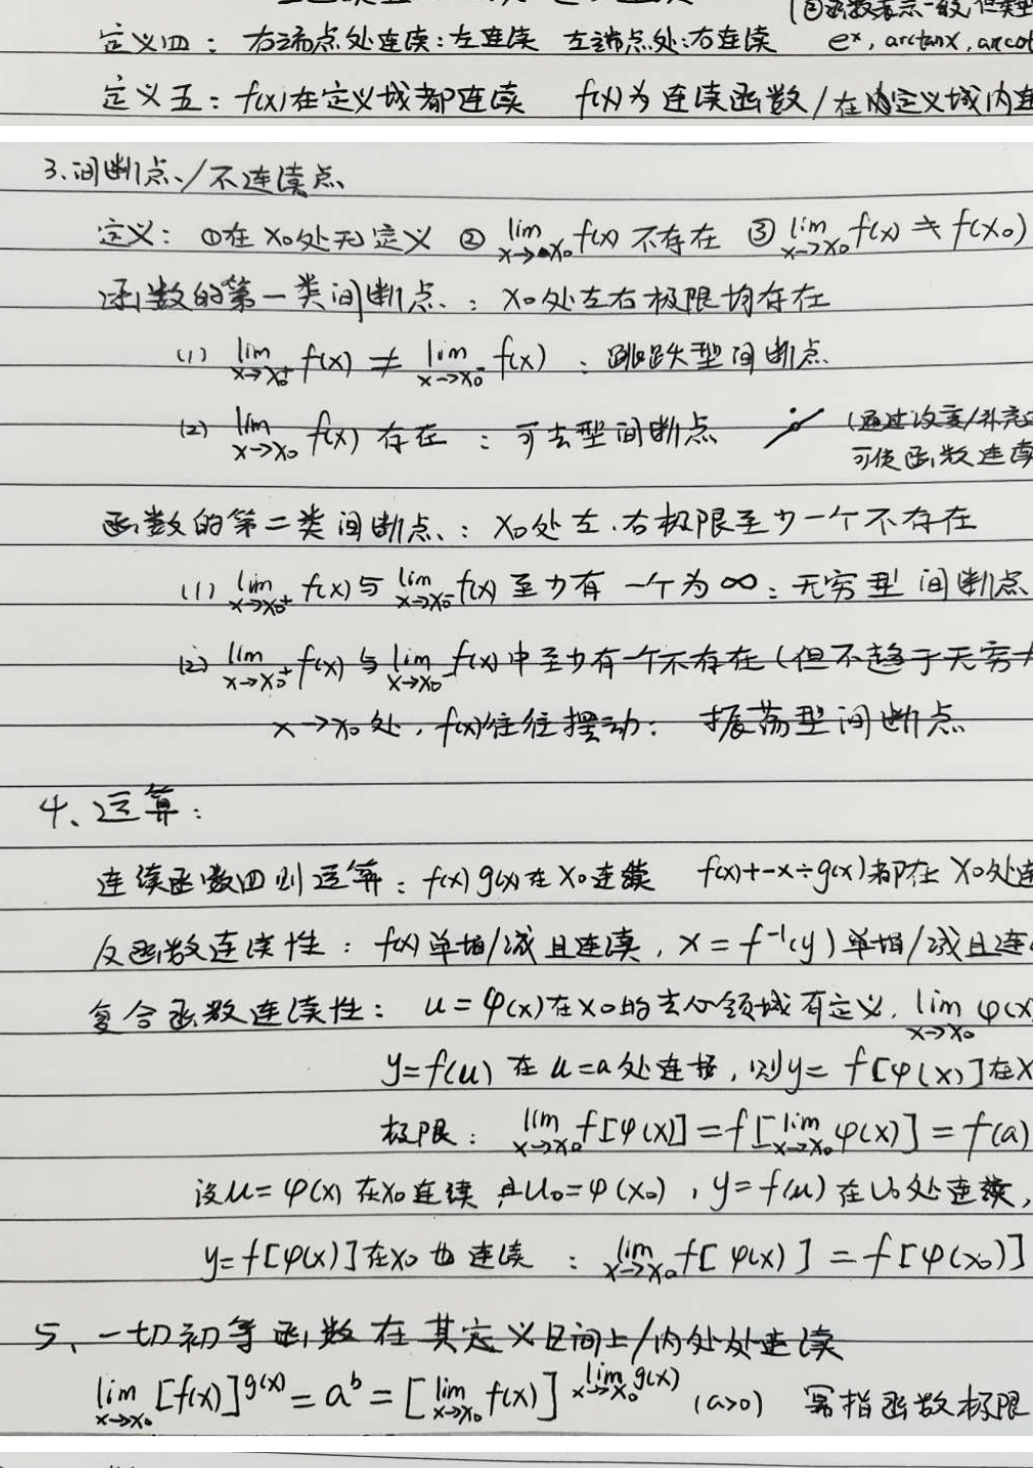 (②函数表示一致,但类型
定义四：右端点处连续:左连续 左端点处:右连续 eˣ, arctanx, arccot
定义五：f(x)在定义域都连续 f(x)为连续函数/在定义域内连
3.间断点/不连续点
定义：①在x₀处无定义 ② lim x→x₀ f(x) 不存在 ③ lim x→x₀ f(x) ≠ f(x₀)
函数的第一类间断点：x₀处左右极限均存在
(1) lim x→x₀⁺ f(x) ≠ lim x→x₀⁻ f(x) ：跳跃型间断点
(2) lim x→x₀ f(x) 存在 ：可去型间断点 (通过改变/补充
可使函数连续
函数的第二类间断点：x₀处左.右极限至少一个不存在
(1) lim x→x₀⁺ f(x)与 lim x→x₀⁻ f(x) 至少有一个为∞：无穷型间断点
(2) lim x→x₀⁺ f(x)与 lim x→x₀⁻ f(x)中至少有一个不存在(但不趋于无穷
x→x₀处，f(x)往往摆动：振荡型间断点
4、运算：
连续函数四则运算：f(x) g(x)在x₀连续 f(x)+-×÷g(x)都在x₀处连
反函数连续性：f(x)单增/减且连续，x=f⁻¹(y)单增/减且连
复合函数连续性：u=φ(x)在x₀的去心领域有定义. lim x→x₀ φ(x
y=f(u) 在u=a处连接，则y= f[φ(x)]在x
极限：lim x→x₀ f[φ(x)]=f[lim x→x₀ φ(x)]=f(a)
设u=φ(x)在x₀连续且u₀=φ(x₀)，y=f(u)在u₀处连续，
y=f[φ(x)]在x₀也连续：lim x→x₀ f[φ(x)]=f[φ(x₀)]
5、一切初等函数在其定义区间上/内处处连续
lim x→x₀ [f(x)]^g(x) = aᵇ = [lim x→x₀ f(x)]^lim x→x₀ g(x) (a>0) 幂指函数极限